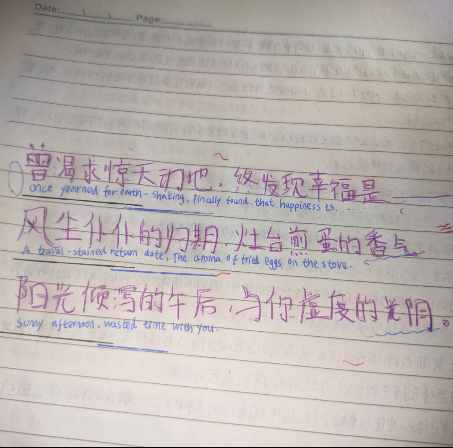 Date: Page:
曾渴求惊天动地，终发现幸福是
once yearned for earth-shaking, finally found that happiness is.
风尘仆仆的归期，灶台煎蛋的香气
A travel-stained return date, The aroma of fried eggs on the stove.
阳光倾泻的午后，与你虚度的光阴。
Sunny afternoon, wasted time with you.